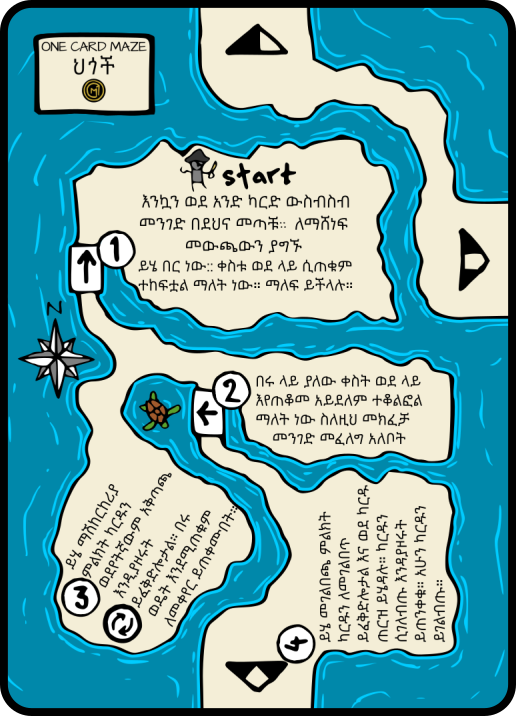 ONE CARD MAZE
ህጎች
start
እንኳን ወደ አንድ ካርድ ውስብስብ
መንገድ በደህና መጣቹ:: ለማሸነፍ
መውጫውን ያግኙ
1
ይሄ በር ነው:: ቀስቱ ወደ ላይ ሲጠቁም
ተከፍቷል ማለት ነው። ማለፍ ይችላሉ።
N
2
በሩ ላይ ያለው ቀስት ወደ ላይ
እየጠቆመ አይደለም ተቆልፎል
ማለት ነው ስለዚህ መክፈቻ
መንገድ መፈለግ አለቦት
3
ይሄ ማሽከርከሪያ
ምልክት ካርዱን
ወደየትኛውም አቅጣጫ
እንዲያዞሩት
ይፈቅድሎታል። በሩ
ወዴት እንደሚጠቁም
ለመቀየር ይጠቀሙበት።
4
ይሄ መገልበጫ ምልክት
ካርዱን ለመገልበጥ
ይፈቅድሎታል እና ወደ ካርዱ
ጠርዝ ይሄዳሉ። ካርዱን
ሲገለብጡ እንዳያዞሩት
ይጠንቀቁ። አሁን ካርዱን
ይገልብጡ።